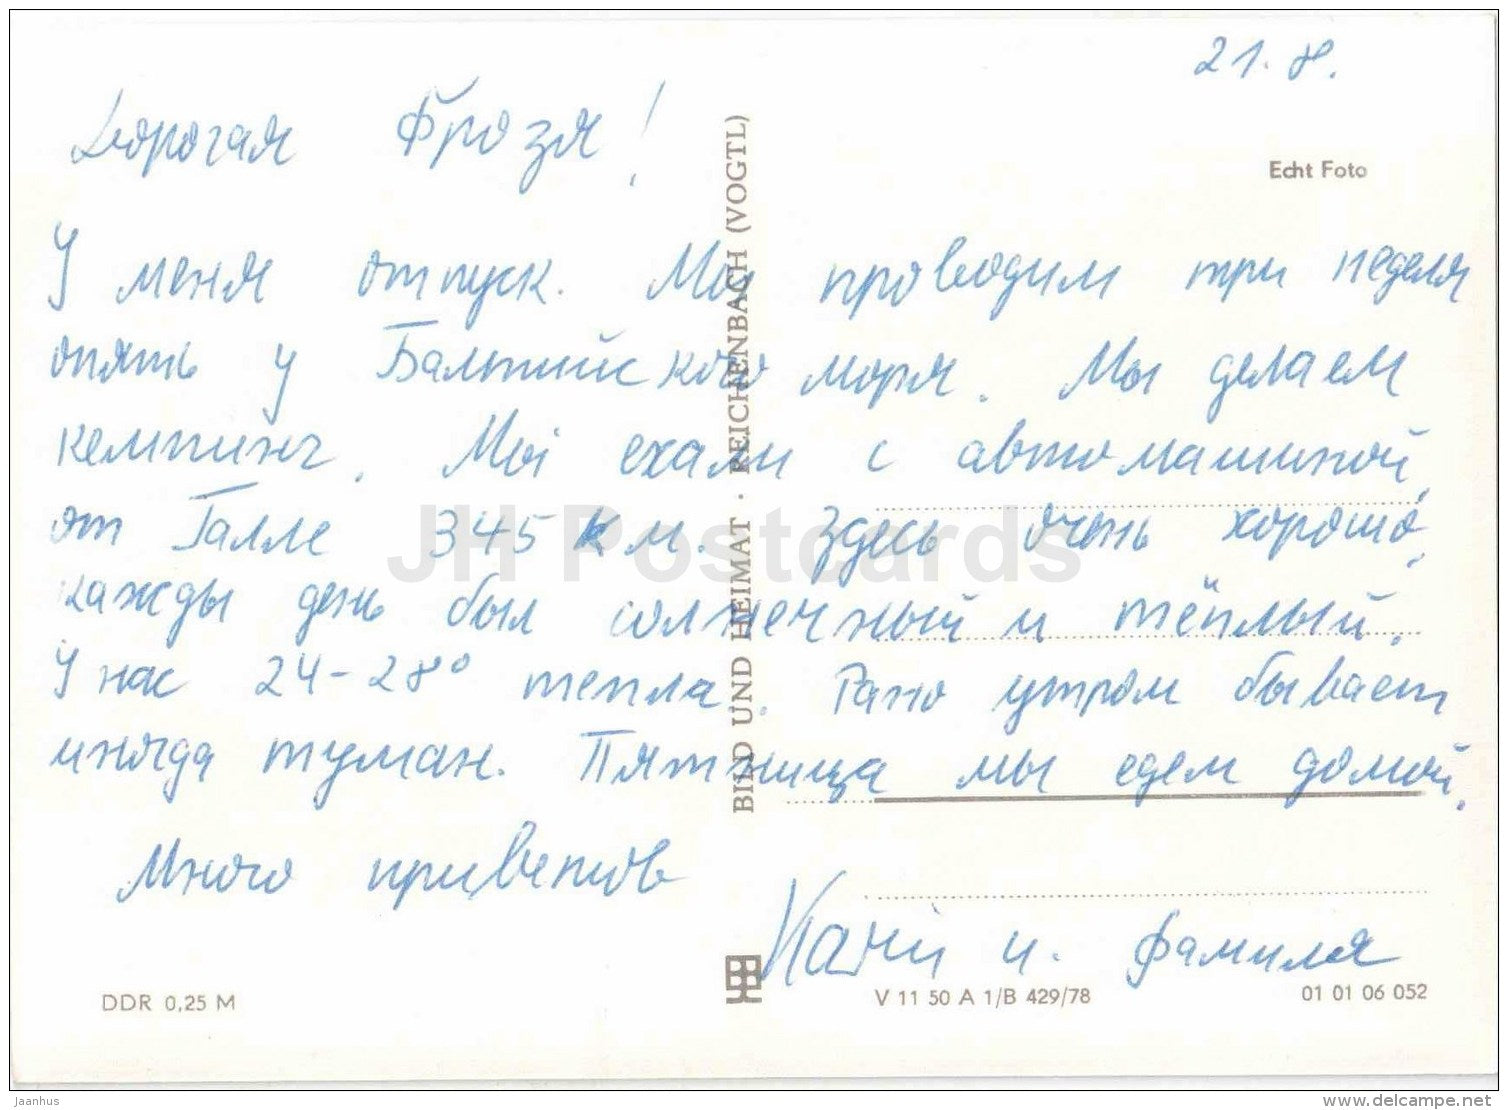 21.8.
Дорогая Фрозя!
Echt Foto
У меня отпуск. Мы проводим три неделя
опять у Балтийского моря. Мы делаем
кемпинг. Мы ехали с автомашиной,
от Галле 345 км. Здесь очень хорошо,
кажды день был солнечный и тёплый.
У нас 24-28° тепла. Рано утром бывает
иногда туман. Пятница мы едем домой.
Много приветов
и. фамиля
BILD UND HEIMAT · REICHENBACH (VOGTL)
DDR 0,25 M
V 11 50 A 1/B 429/78
01 01 06 052
JH Postcards
Jaanhus
www.delcampe.net